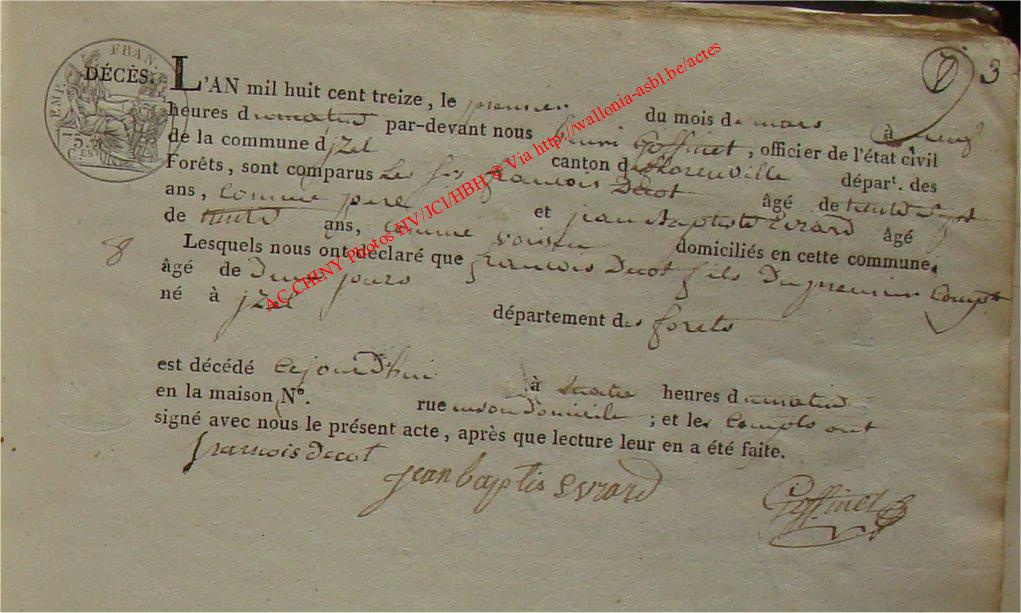 3
EMP. FRAN.
DÉCÈS.
L'AN mil huit cent treize, le premier du mois de mars à neuf
heures du matin par-devant nous henri Goffinet, officier de l'état civil
de la commune d jzel canton de florenville départ. des
Forêts, sont comparus Les srs francois Decot âgé de trente sept
ans, comme pere et jean Baptiste Evrard âgé
de trente ans, comme voisin domiciliés en cette commune,
8
Lesquels nous ont déclaré que francois Decot fils du premier compt
âgé de jours
né à jzel département des forets
est décédé cejourd'hui à quatre heures du matin
en la maison N°. rue en son domicile ; et les compts ont
signé avec nous le présent acte, après que lecture leur en a été faite.
francois Decot
jean baptis Evrard
Goffinet
AC CHINY Photos HV/JCl/HBH © Via http://wallonia-asbl.be/actes